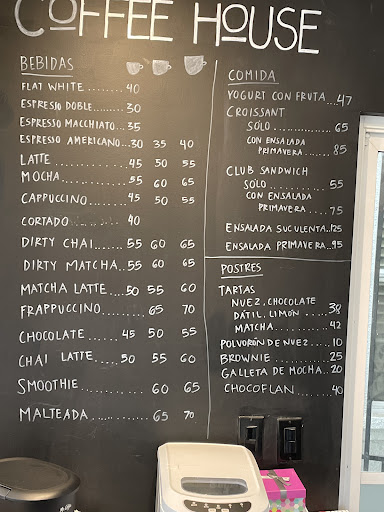 COFFEE HOUSE
BEBIDAS
FLAT WHITE ........ 40
ESPRESO DOBLE ........ 30
ESPRESSO MACCHIATO ... 35
ESPRESSO AMERICANO .. 30 35 40
LATTE ............ 45 50 55
MOCHA ............ 55 60 65
CAPPUCCINO ........ 45 50 55
CORTADO ........ 40
DIRTY CHAI ...... 55 60 65
DIRTY MATCHA .. 55 60 65
MATCHA LATTE .... 50 55 60
FRAPPUCCINO ........ 65 70
CHOCOLATE ..... 45 50 55
CHAI LATTE .... 50 55 60
SMOOTHIE ........ 60 65
MALTEADA ........ 65 70
COMIDA
YOGURT CON FRUTA ... 47
CROISSANT
SÓLO .............. 65
CON ENSALADA
PRIMAVERA ...... 85
CLUB SANDWICH
SÓLO .............. 55
CON ENSALADA
PRIMAVERA ..... 75
ENSALADA SUCULENTA .. 125
ENSALADA PRIMAVERA ... 95
POSTRES
TARTAS
NUEZ, CHOCOLATE
DÁTIL, LIMÓN ....... 38
MATCHA ........... 42
POLVORÓN DE NUEZ .... 10
BROWNIE ............ 25
GALLETA DE MOCHA .. 20
CHOCOFLAN ......... 40